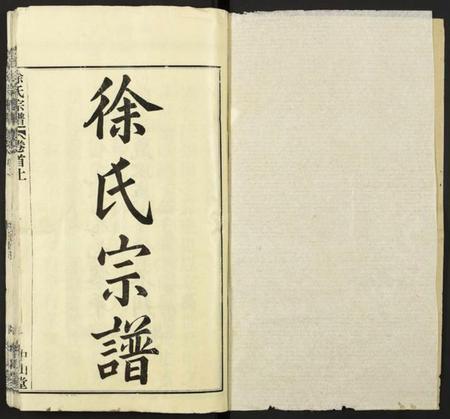 徐氏宗譜
徐氏宗譜
卷首上
山堂